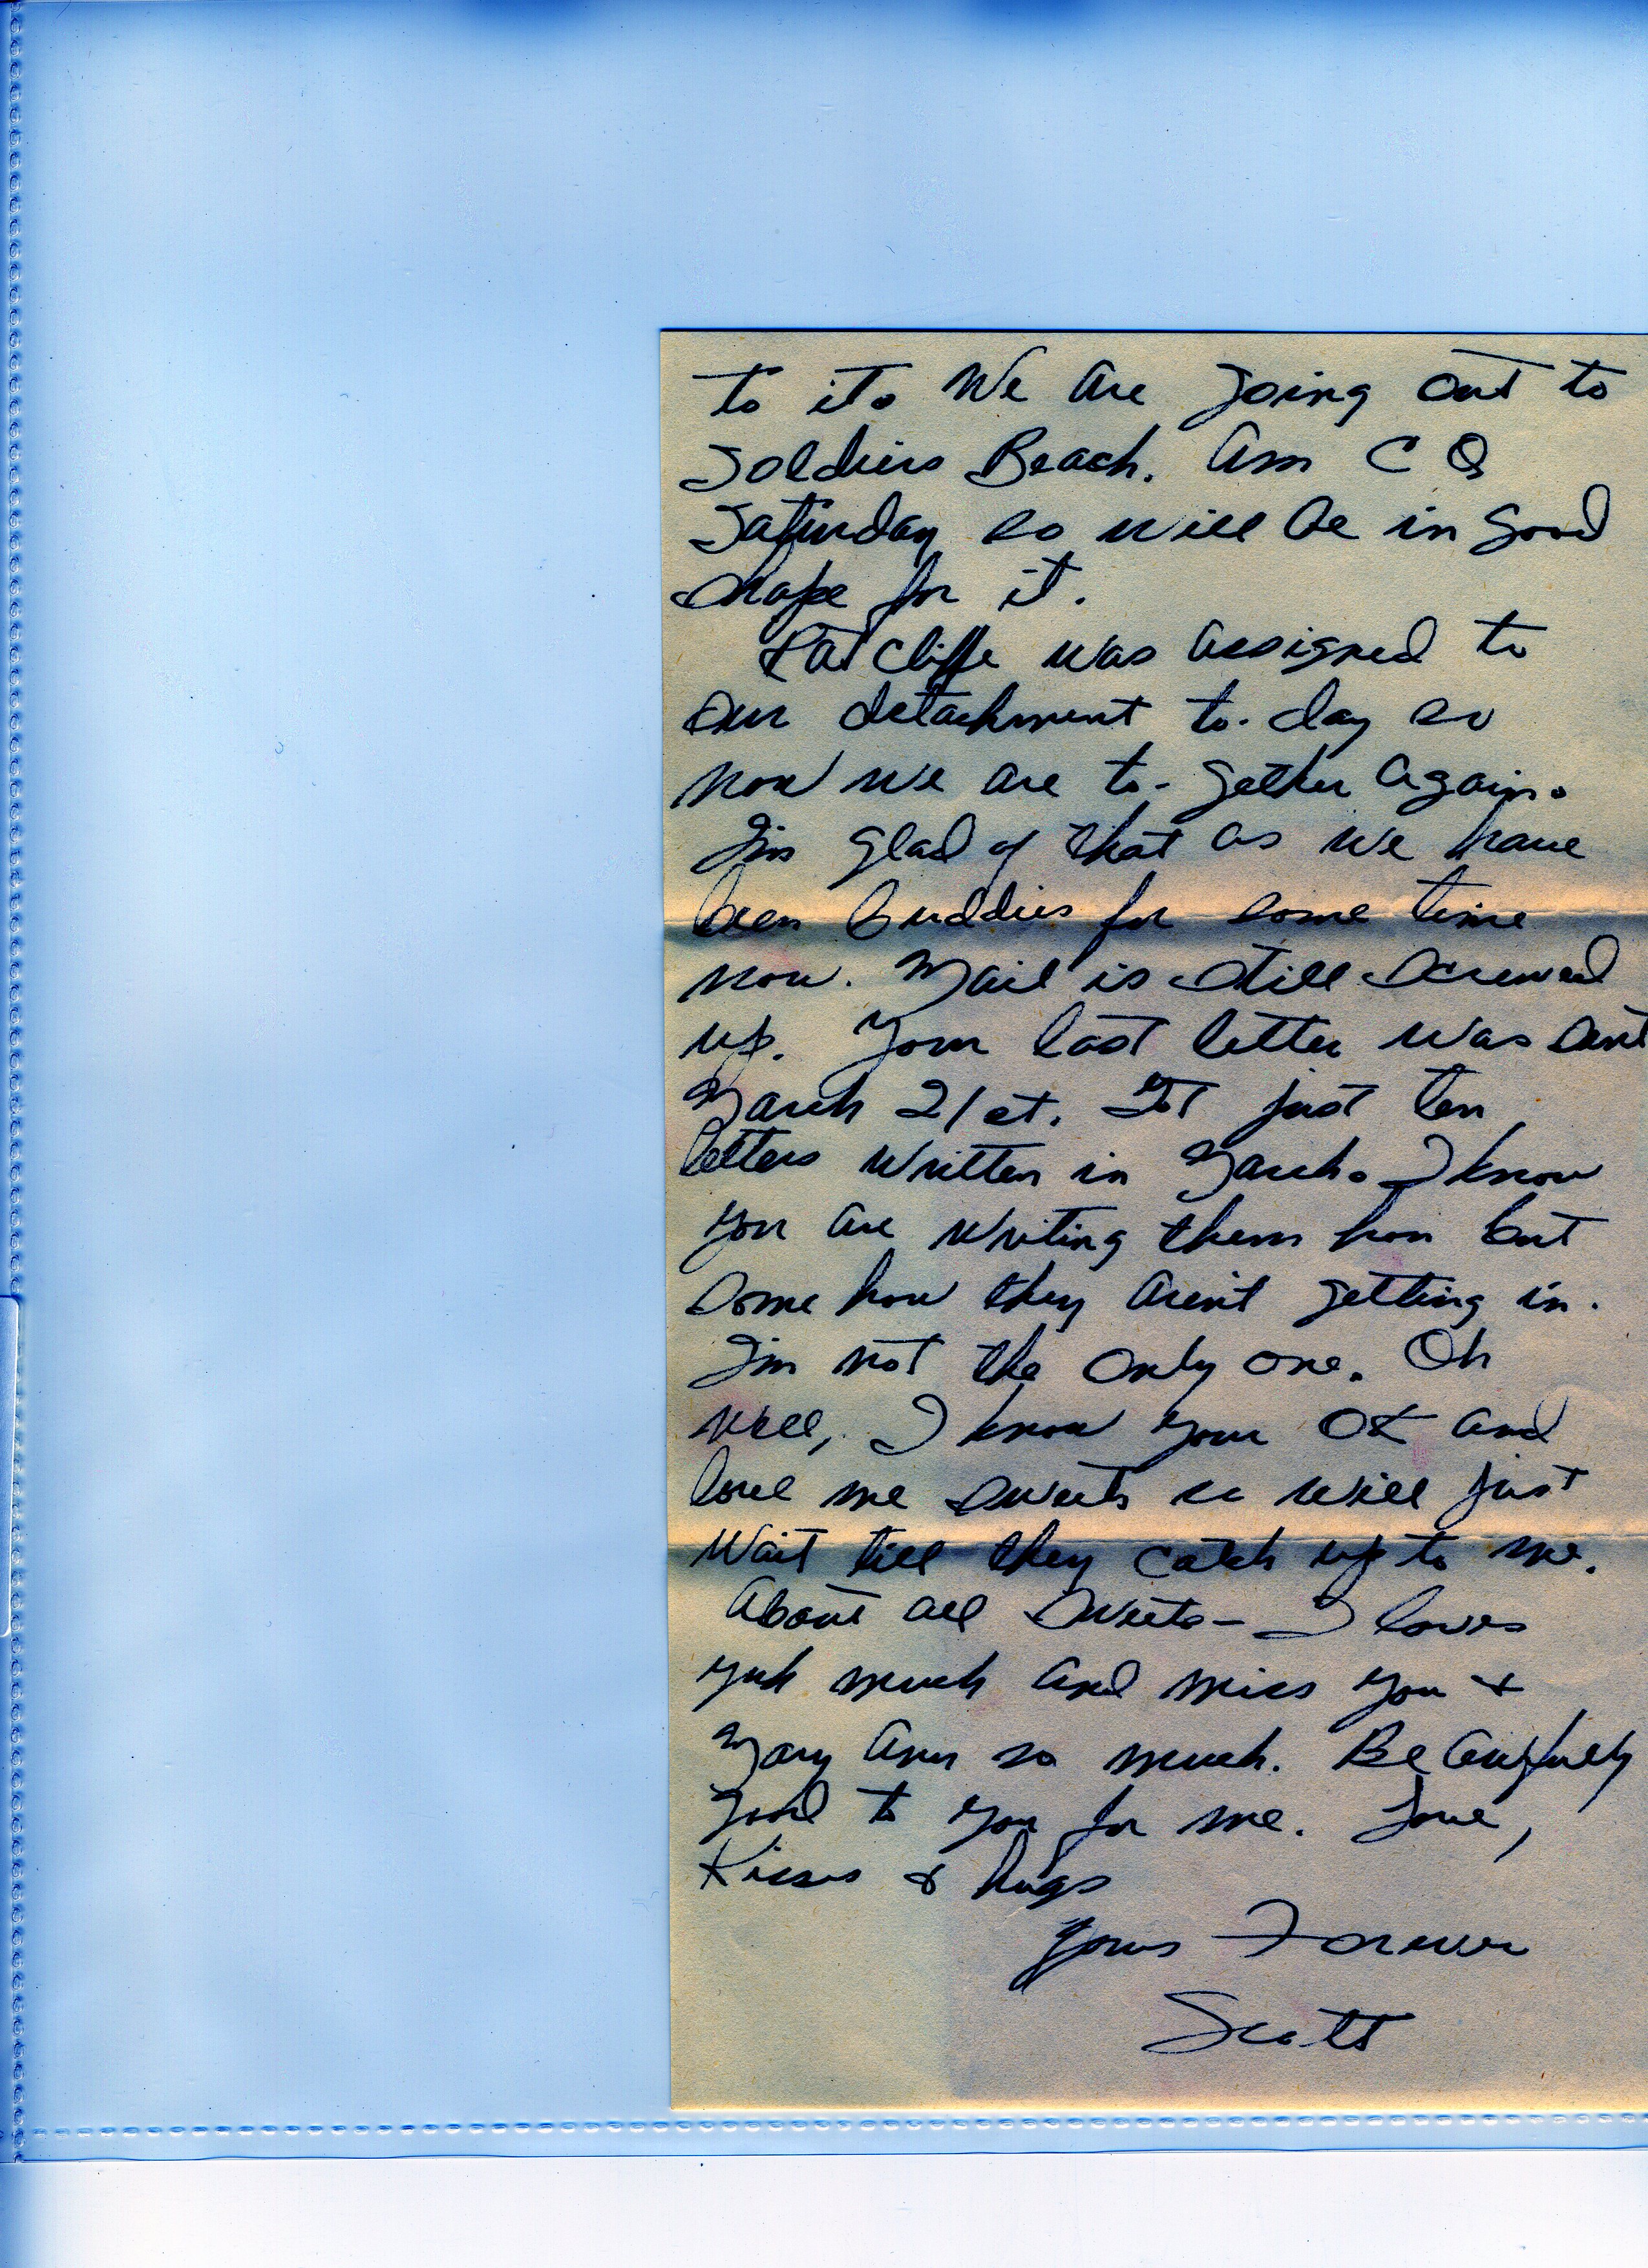 to it. We are going out to
Soldiers Beach. Am C Q
Saturday so will be in good
shape for it.
Ratcliffe was assigned to
our detachment to-day so
now we are to-gether again.
I'm glad of that as we have
been buddies for some time
now. Mail is still screwed
up. Your last letter was sent
March 21st. Got just ten
letters written in March. I know
you are writing them hon but
some how they aren't getting in.
I'm not the only one. Oh
well, I know your OK and
love me sweets so will just
wait till they catch up to me.
About all sweets - I loves
yuh much and miss you &
Mary Ann so much. Be awfully
good to you for me. Love,
Kisses & hugs
Yours Forever
Scott